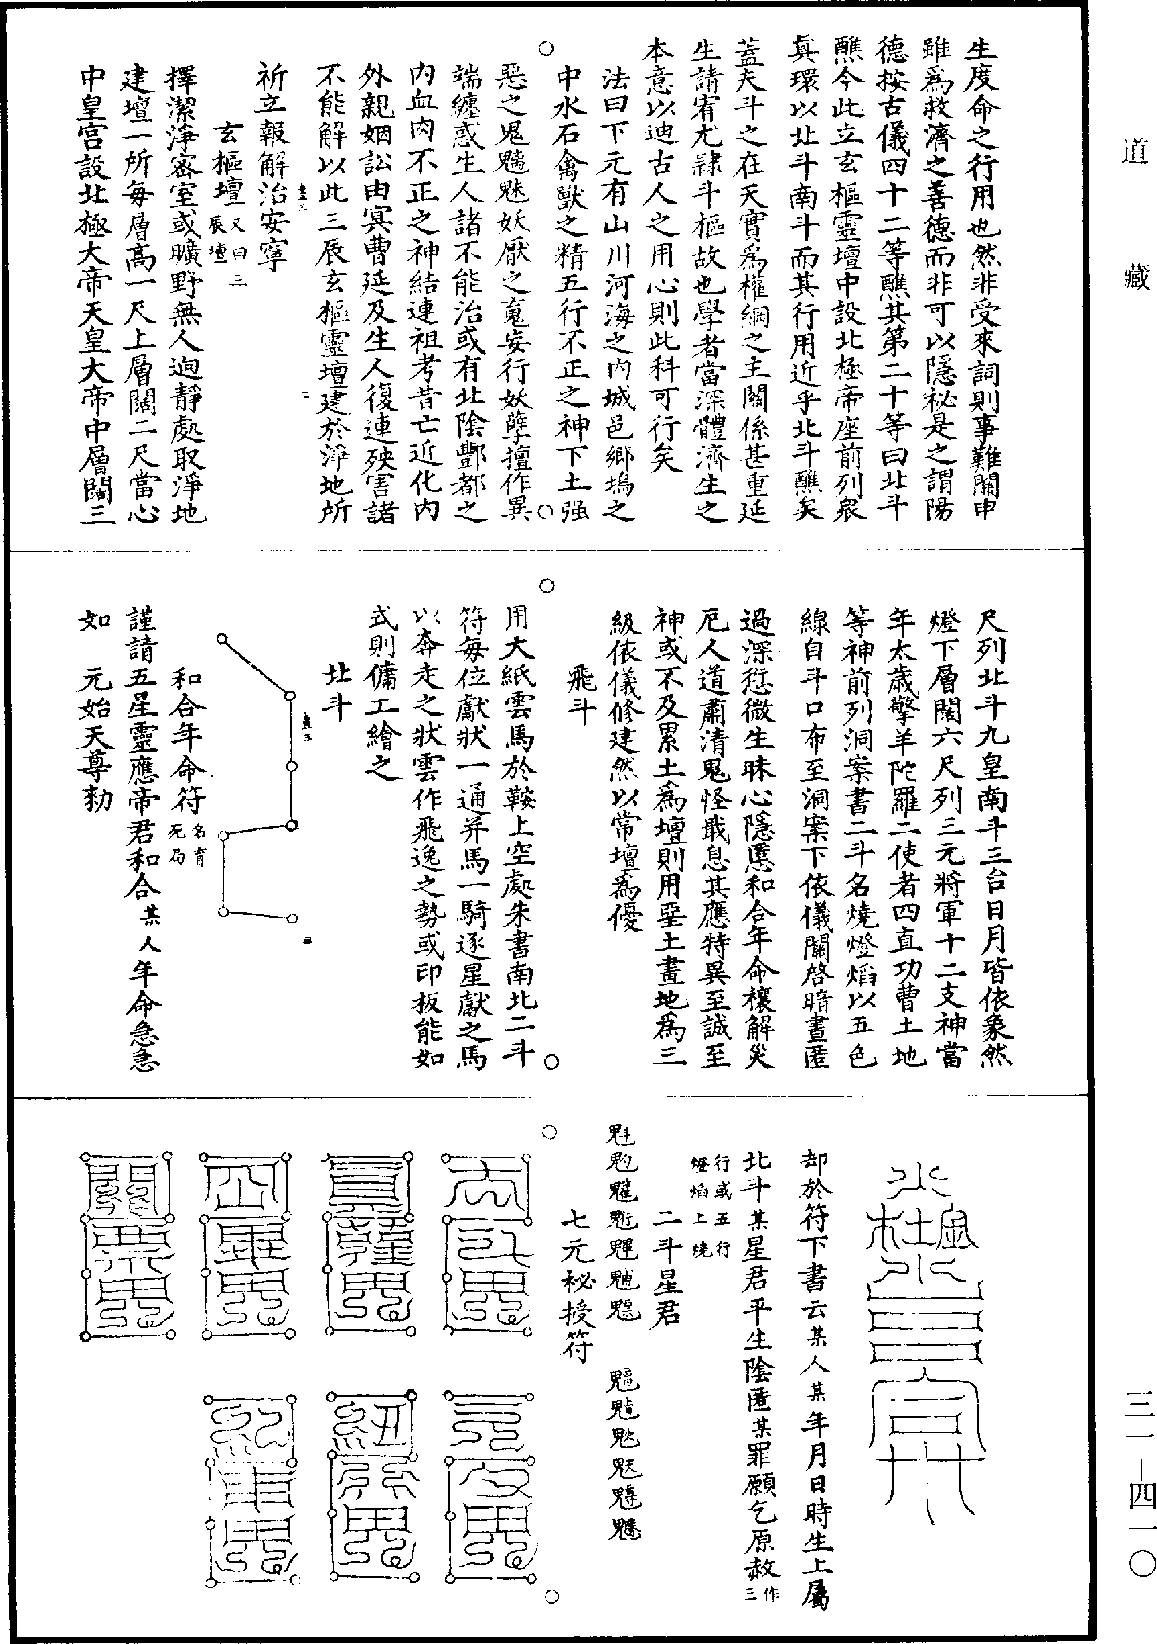 道藏
三一—四一〇
生度命之行用也然非受來詞則事難關申
雖爲救濟之善德而非可以隱祕是之謂陽
德按古儀四十二等醮其第二十等曰北斗
醮今此立玄樞靈壇中設北極帝座前列衆
真環以北斗南斗而其行用近乎北斗醮矣
蓋夫斗之在天實爲權綱之主關係甚重延
生請宥尤隷斗樞故也學者當深體濟生之
本意以迪古人之用心則此科可行矣
法曰下元有山川河海之内城邑鄉塢之
中水石禽獸之精五行不正之神下土强
惡之鬼魑魅妖厭之鬼妄行妖孽擅作異
端纏惑生人諸不能治或有北陰酆都之
内血肉不正之神結連祖考昔亡近化内
外親姻訟由冥曹延及生人復連殃害諸
不能解以此三辰玄樞靈壇建於淨地所
祈立報解治安寧
玄樞壇又曰三辰壇
擇潔淨密室或曠野無人迥靜處取淨地
建壇一所每層高一尺上層闊二尺當心
中皇宫設北極大帝天皇大帝中層闊三
尺列北斗九皇南斗三台日月皆依象然
燈下層闊六尺列三元將軍十二支神當
年太歲擎羊陀羅二使者四直功曹土地
等神前列洞案書二斗名燒燈焰以五色
線自斗口布至洞案下依儀關啓暗晝匿
過深愆微生昧心隱慝和合年命禳解災
厄人道肅清鬼怪戢息其應特異至誠至
神或不及累土爲壇則用堊土畫地爲三
級依儀修建然以常壇爲優
飛斗
用大紙雲馬於鞍上空處朱書南北二斗
符每位獻狀一通并馬一騎逐星獻之馬
以奔走之狀雲作飛逸之勢或印板能如
式則傭工繪之
北斗
和合年命符名育死局
謹請五星靈應帝君和合某人年命急急
如元始天尊勅
却於符下書云某人某年月日時生上屬
北斗某星君平生陰匿某罪願乞原赦作三
行或五行燈焰上燒
二斗星君
七元秘授符